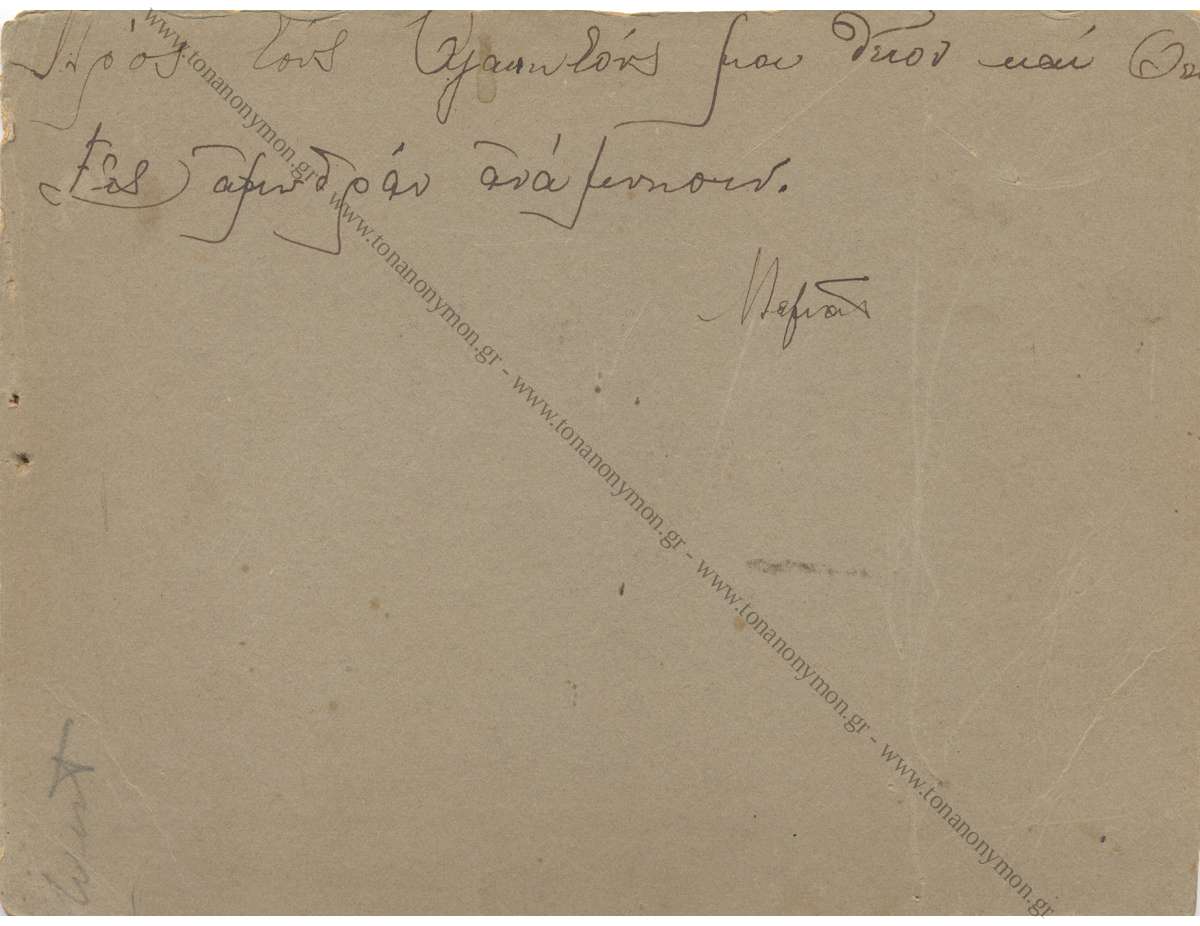 Πρός τούς Ἀγαπητούς μου θεῖον καί
εἰς ἀμυδράν ἀνάμνησιν.
www.tonanonymon.gr - www.tonanonymon.gr - www.tonanonymon.gr - www.tonanonymon.gr - www.tonanonymon.gr